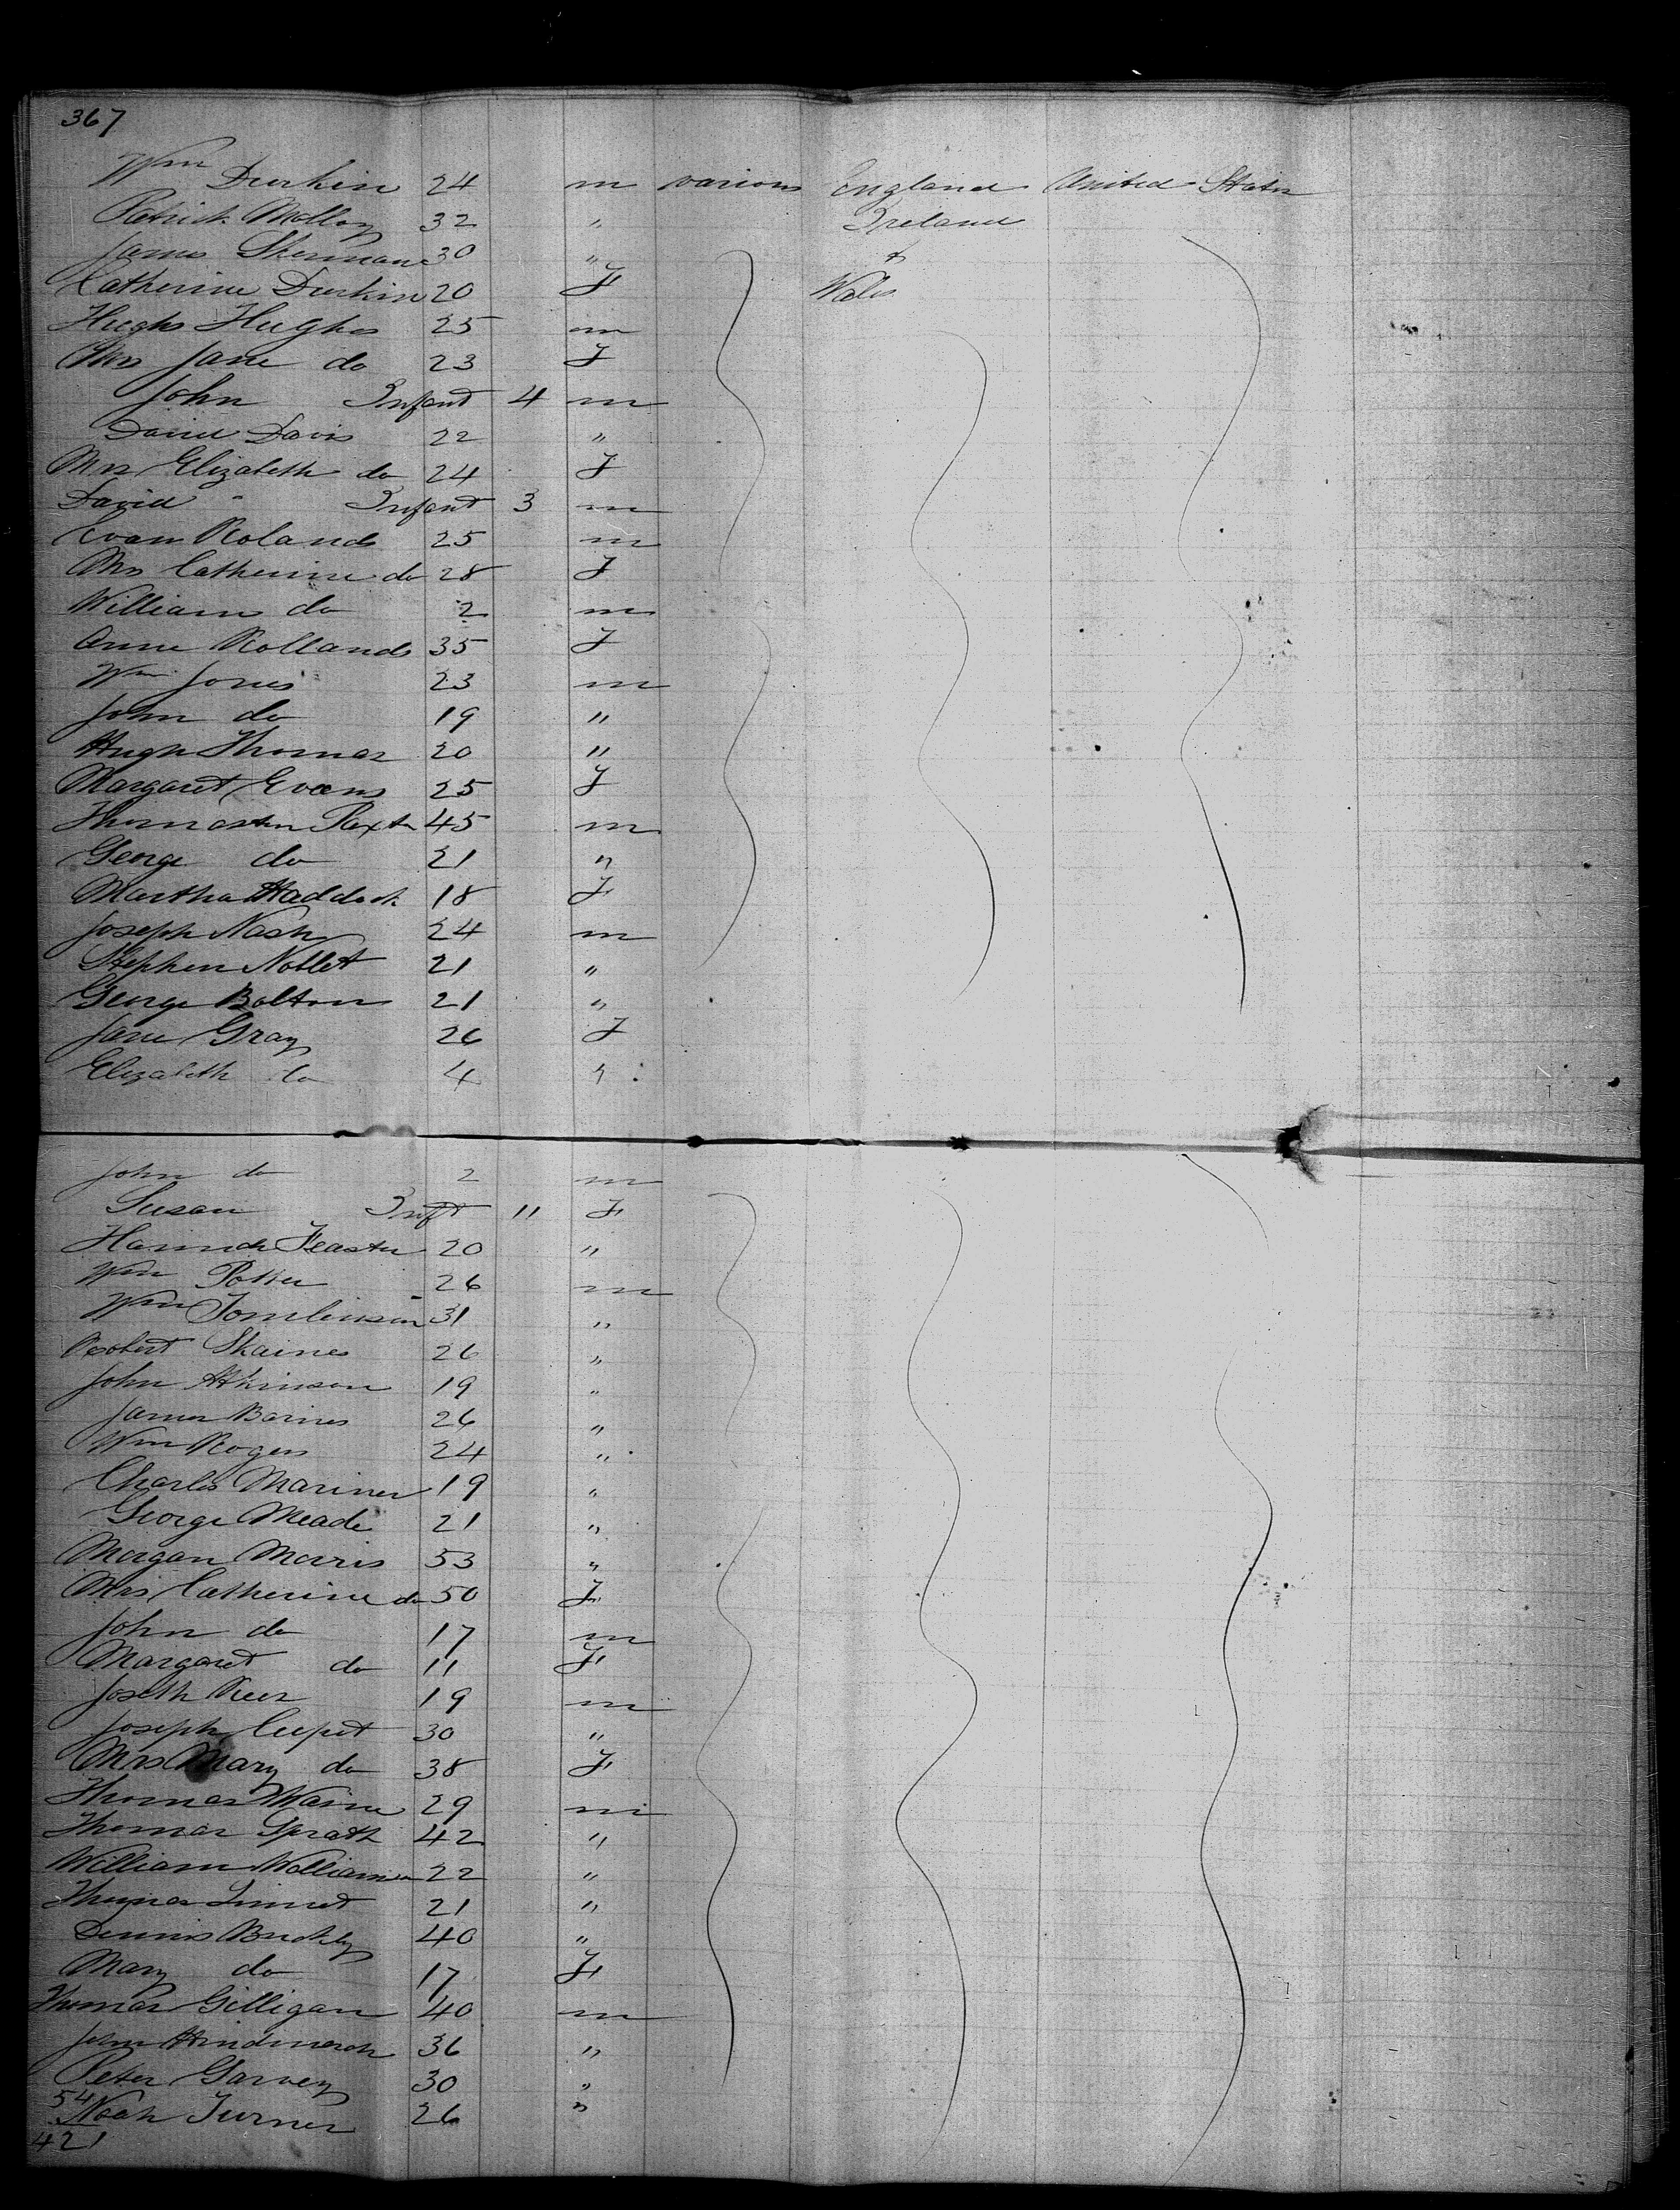 367
Wm Durkin 24 m various England United States
Patrick Molloy 32 " Ireland
James Shermane 30 " &
Catherine Durkin 20 F Wales
Hughs Hughes 25 m
Mrs Jane do 23 F
John Infant 4 m
David Davis 22 "
Mrs Elizabeth do 24 F
David " Infant 3 m
Evan Rolands 25 m
Mrs Catherine do 28 F
William do 2 m
Anne Rollands 35 F
Wm Jones 23 m
John do 19 "
Hugh Thomas 20 "
Margaret Evans 25 F
45 m
George do 21 "
Martha Haddock 18 F
Joseph Nash 24 m
Stephen Noblet 21 "
George Bolton 21 "
Jane Gray 26 F
Elizabeth do 4 "
John do 2 m
Susan Inft 11 F
Hannah Feaster 20 "
Wm Potter 26 m
Wm Tomlinson 31 "
Robert Skaines 26 "
John Atkinson 19 "
James Barnes 26 "
Wm Rogers 24 "
Charles Mariner 19 "
George Meade 21 "
Morgan Morris 53 "
Mrs Catherine do 50 F
John do 17 m
Margaret do 11 F
19 m
Joseph 30 "
Mrs Mary do 38 F
Thomas 29 m
Thomas Spratt 42 "
William Williamson 22 "
Thomas 21 "
Dennis Buckley 40 "
Mary do 17 F
Thomas Gilligan 40 m
John Hindmarch 36 "
Peter Garvey 30 "
54 Noah Turner 26 "
421